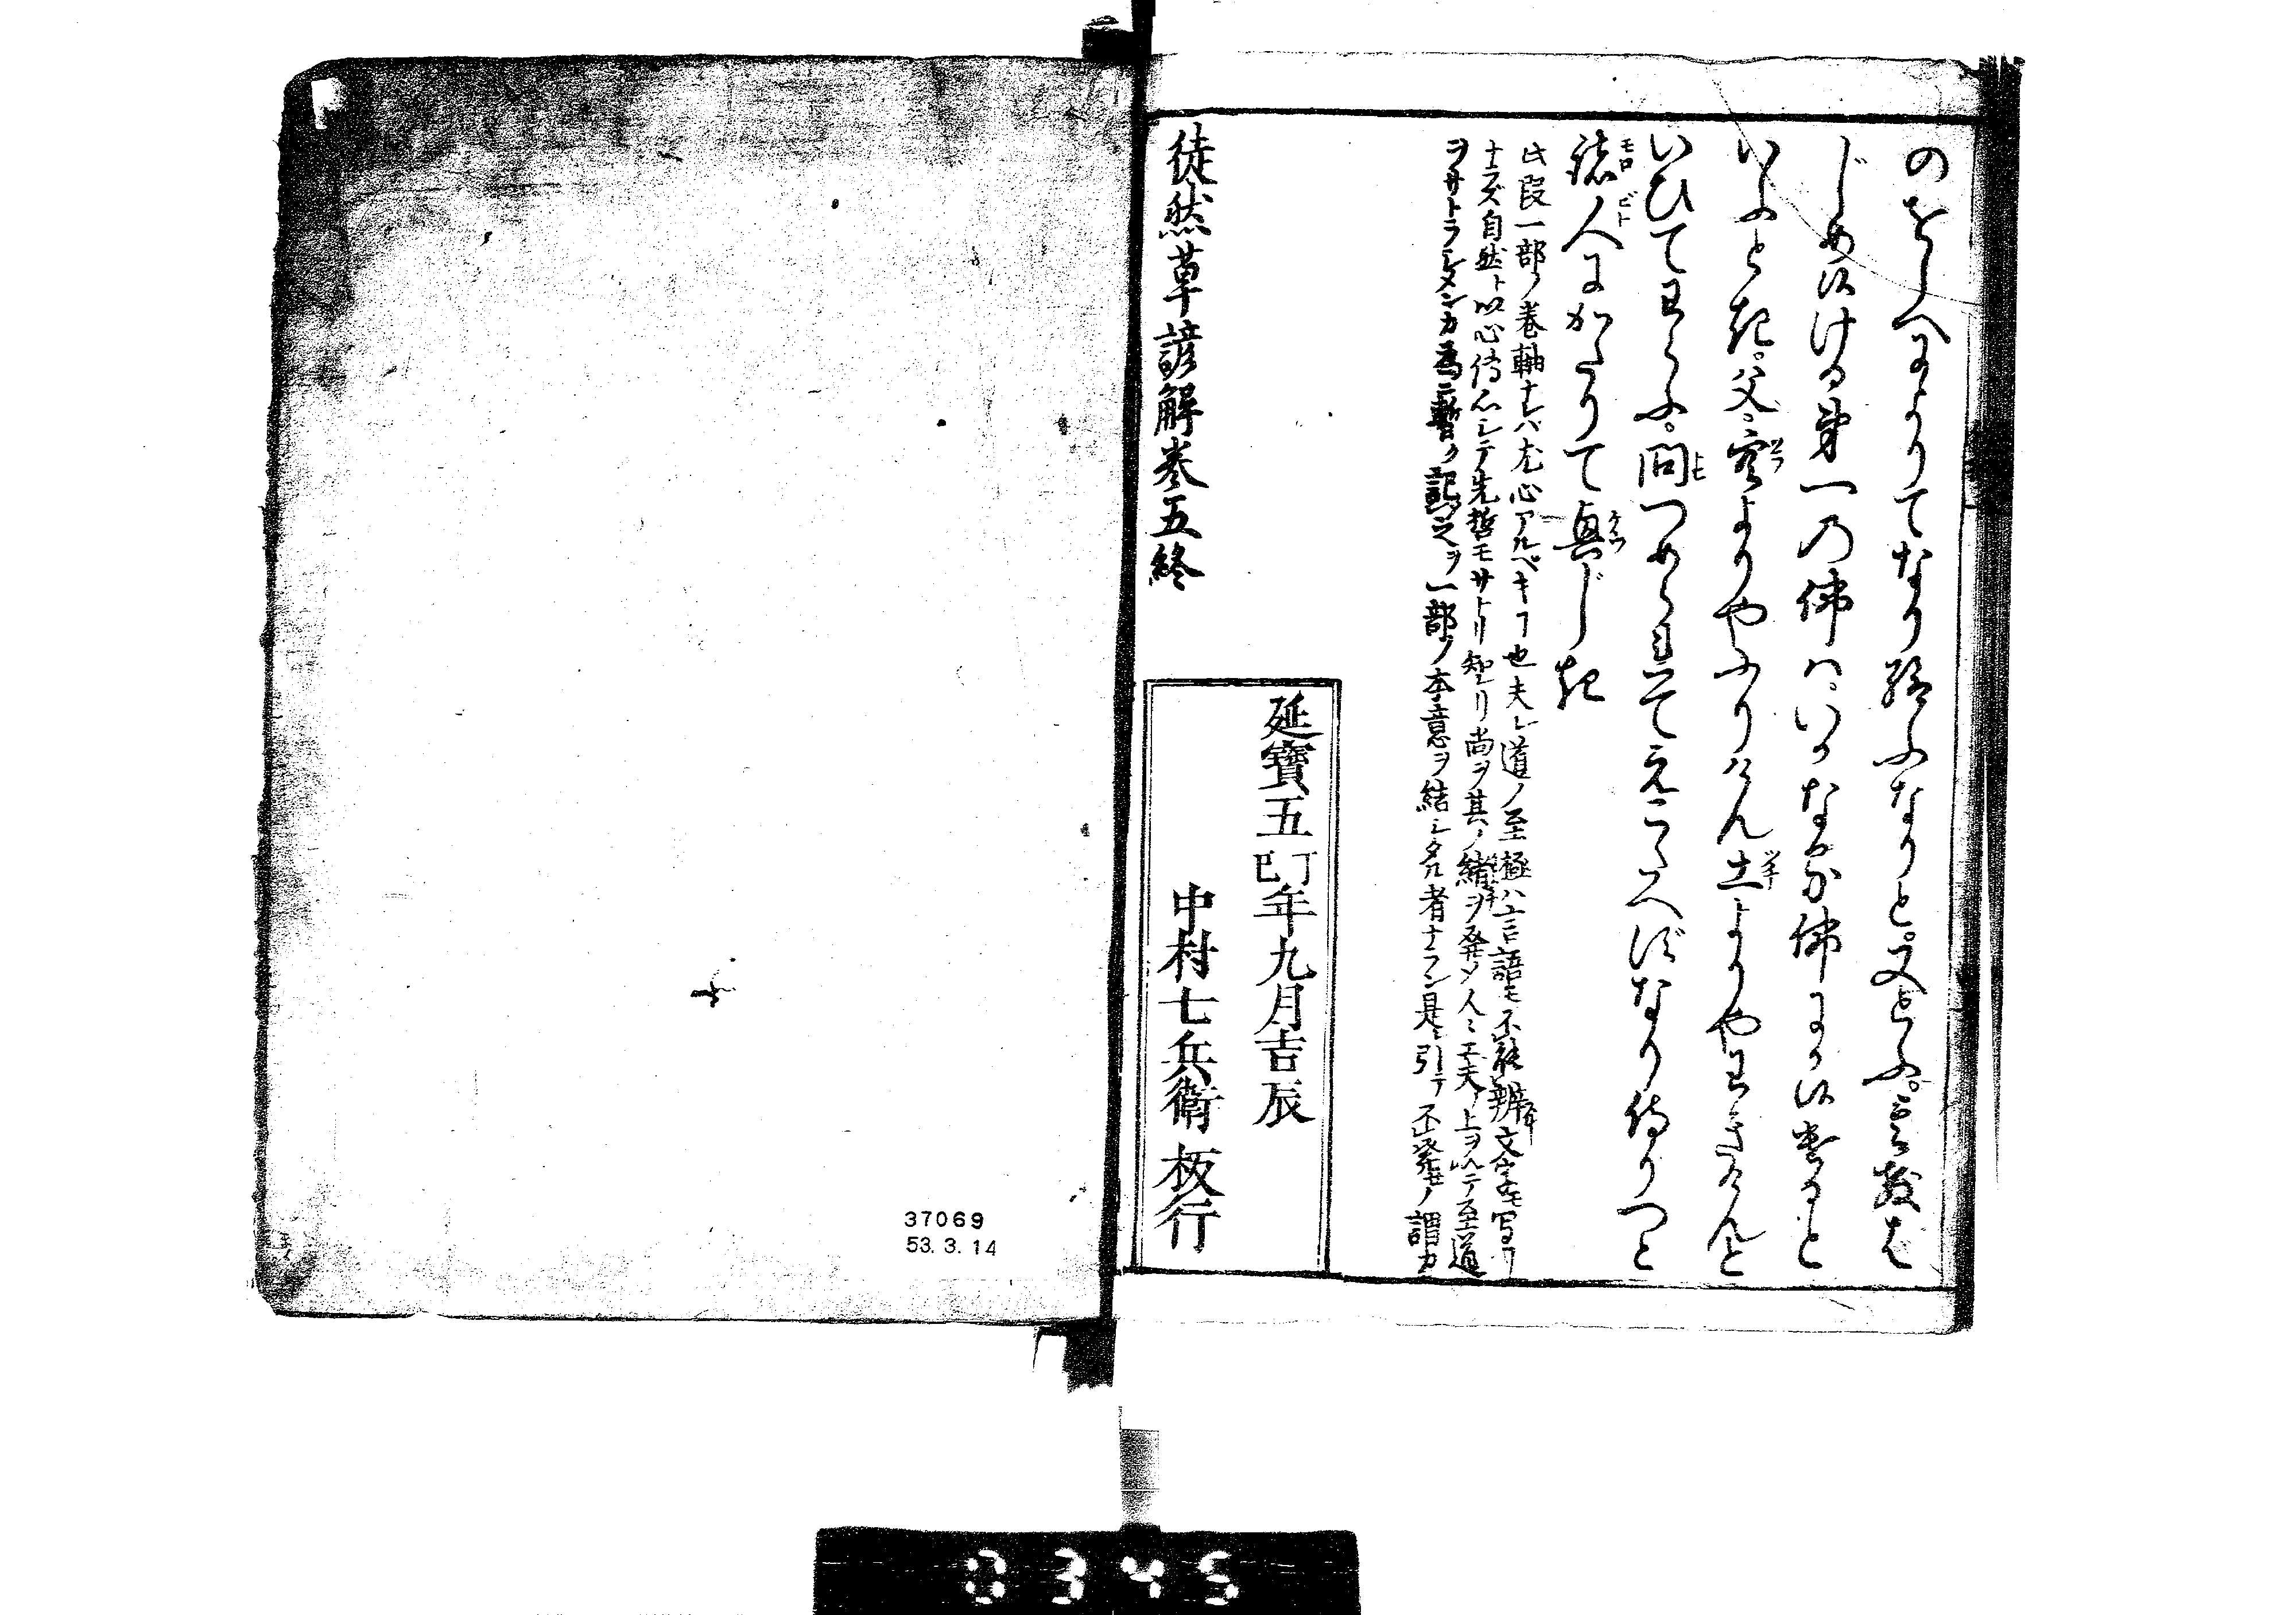 のをしへによりてなり給ふなりと。又とふ。こゝ教は
じめ候ける第一の佛は、いかなる佛にか候けると
いふとき。父、空よりやふりけん土よりやわきけんと
いひてわらふ。問つめられてえこたへずなり侍りつと
諸人にかたりて興じき
此段一部ノ巻軸ナレバ尤心アルベキヿ也夫レ道ノ至極ハ言語モ不能辨文字モ写スヿ
ナラズ自然ト以心傳心シテ先哲モサトリ知レリ尚ヲ其ノ緒ヲ発メ人ミ工夫ノ上ヲ以テ至道
ヲサトラシメンカ為ニ暫ク記シ之ヲ一部ノ本意ヲ結シタル者ナラン是ミ引テ不発ノ謂カ
延寶五丁巳年九月吉辰
中村七兵衛 板行
徒然草諺解巻五終
37069
53. 3. 14
0345